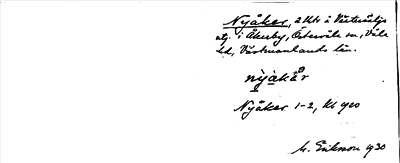 Nyåker, 2 hm i Västersälja
utj. i Åkerby, Östervåla sn, Våla
hd, Västmanlands län.
nỳjakår
Nyåker 1-2, kb 900
M. Eriksson 1930